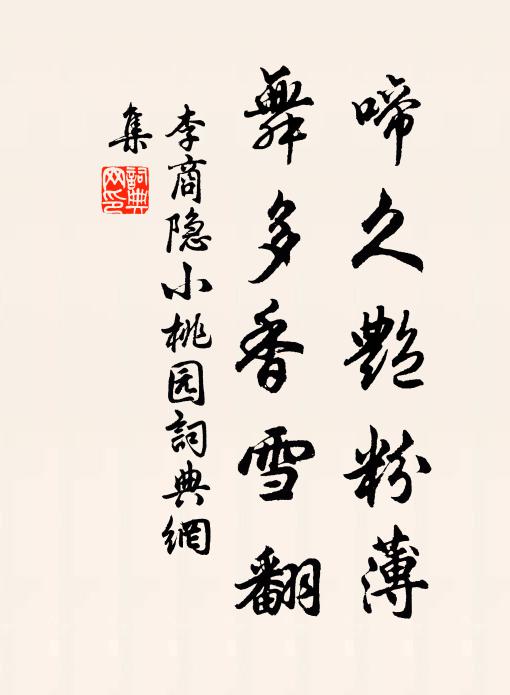 啼久艷粉薄
舞多香雪翻
李商隐小桃园詞典網
集
詞典
网印